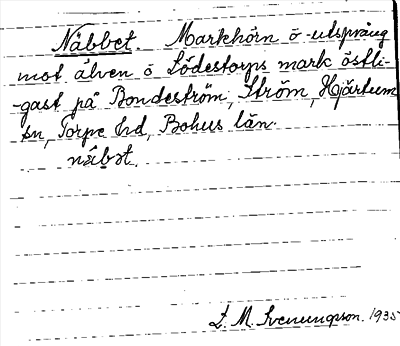 Näbbet. Markhörn o utsprång
mot älven å Södestorps mark östli-
gast på Bondeström, Ström, Hjärtum
sn, Torpe hd, Bohus län.
näbət.
S. M. Svenungsson. 1935